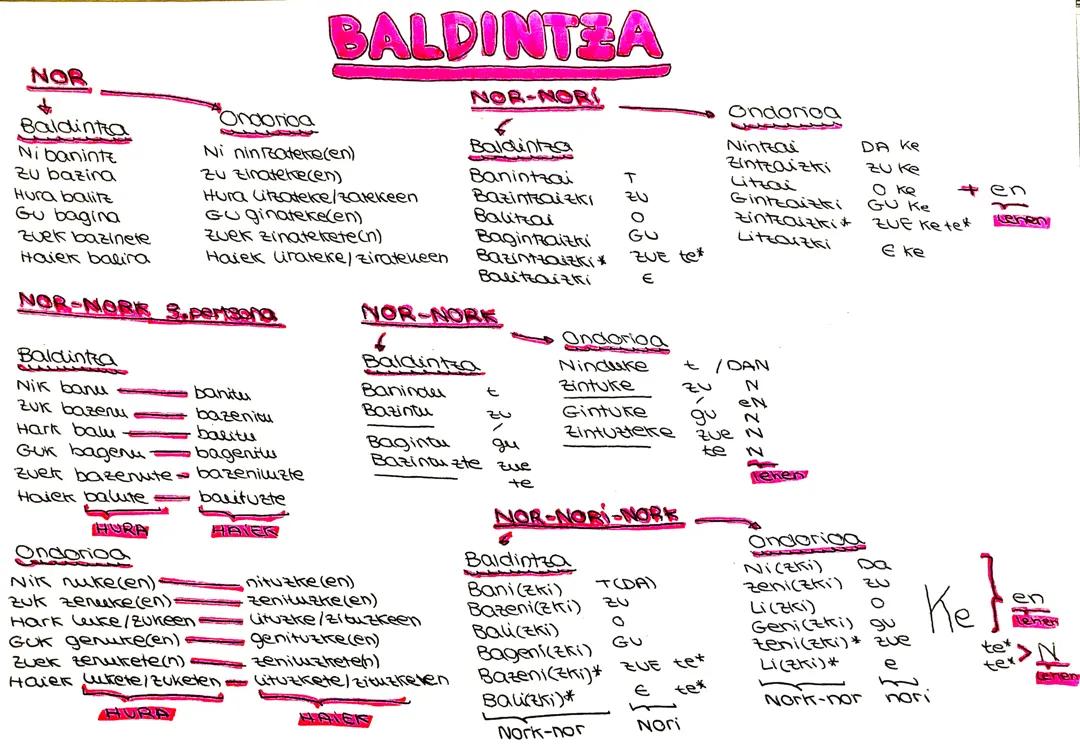 BALDINTZA
NOR
Baldintza
Ni banintz
Zu bazina
Hura balitz
Gu bagina
Zuek bazinete
Haiek balira
Ondorioa
Ni nintzateke(en)
Zu zinateke(en)
Hura litzateke/zatekeen
Gu ginateke(en)
Zuek zinatekete(n)
Haiek lirateke/ziratekeen
NOR-NORI
Baldintza
Banintzai T
Bazintzaizki ZU
Balitzai O
Bagintzaizki GU
Bazintzaizki* ZUE te*
Balitzaizki E
Ondorioa
Nintzai DA Ke
Zintzaizki ZU Ke
Litzai O Ke
Gintzaizki GU Ke
Zintzaizki* ZUE Ke te*
Litzaizki E Ke
+ en
lehen
NOR-NORK 3.pertsona
Baldintza
Nik banu banitu
Zuk bazenu bazenitu
Hark balu balitu
Guk bagenu bagenitu
Zuek bazenute bazenituzte
Haiek balute balituzte
HURA HAIEK
Ondorioa
Nik nuke(en) nituzke(en)
Zuk zenuke(en) zenituzke(en)
Hark luke/zukeen lituzke/zituzkeen
Guk genuke(en) genituzke(en)
Zuek zenukete(n) zenituzkete(n)
Haiek lukete/zuketen lituzkete/zituzketen
HURA HAIEK
NOR-NORK
Baldintza
Banindu t
Bazintu zu
Bagintu gu
Bazintuzte zue
te
Ondorioa
Ninduke t /DAN
Zintuke zu N
eN
Gintuke gu N
Zintuzteke zue N
te N
lehen
NOR-NORI-NORK
Baldintza
Bani(zki) T(DA)
Bazeni(zki) ZU
Bali(zki) O
Bageni(zki) GU
Bazeni(zki)* ZUE te*
Bali(zki)* E te*
Nork-nor Nori
Ondorioa
Ni(zki) Da
Zeni(zki) zu
Li(zki) O
Geni(zki) gu
Zeni(zki)* zue
Li(zki)* e
Nork-nor nori
Ke
en
lehen
te*
te* > N
lehen